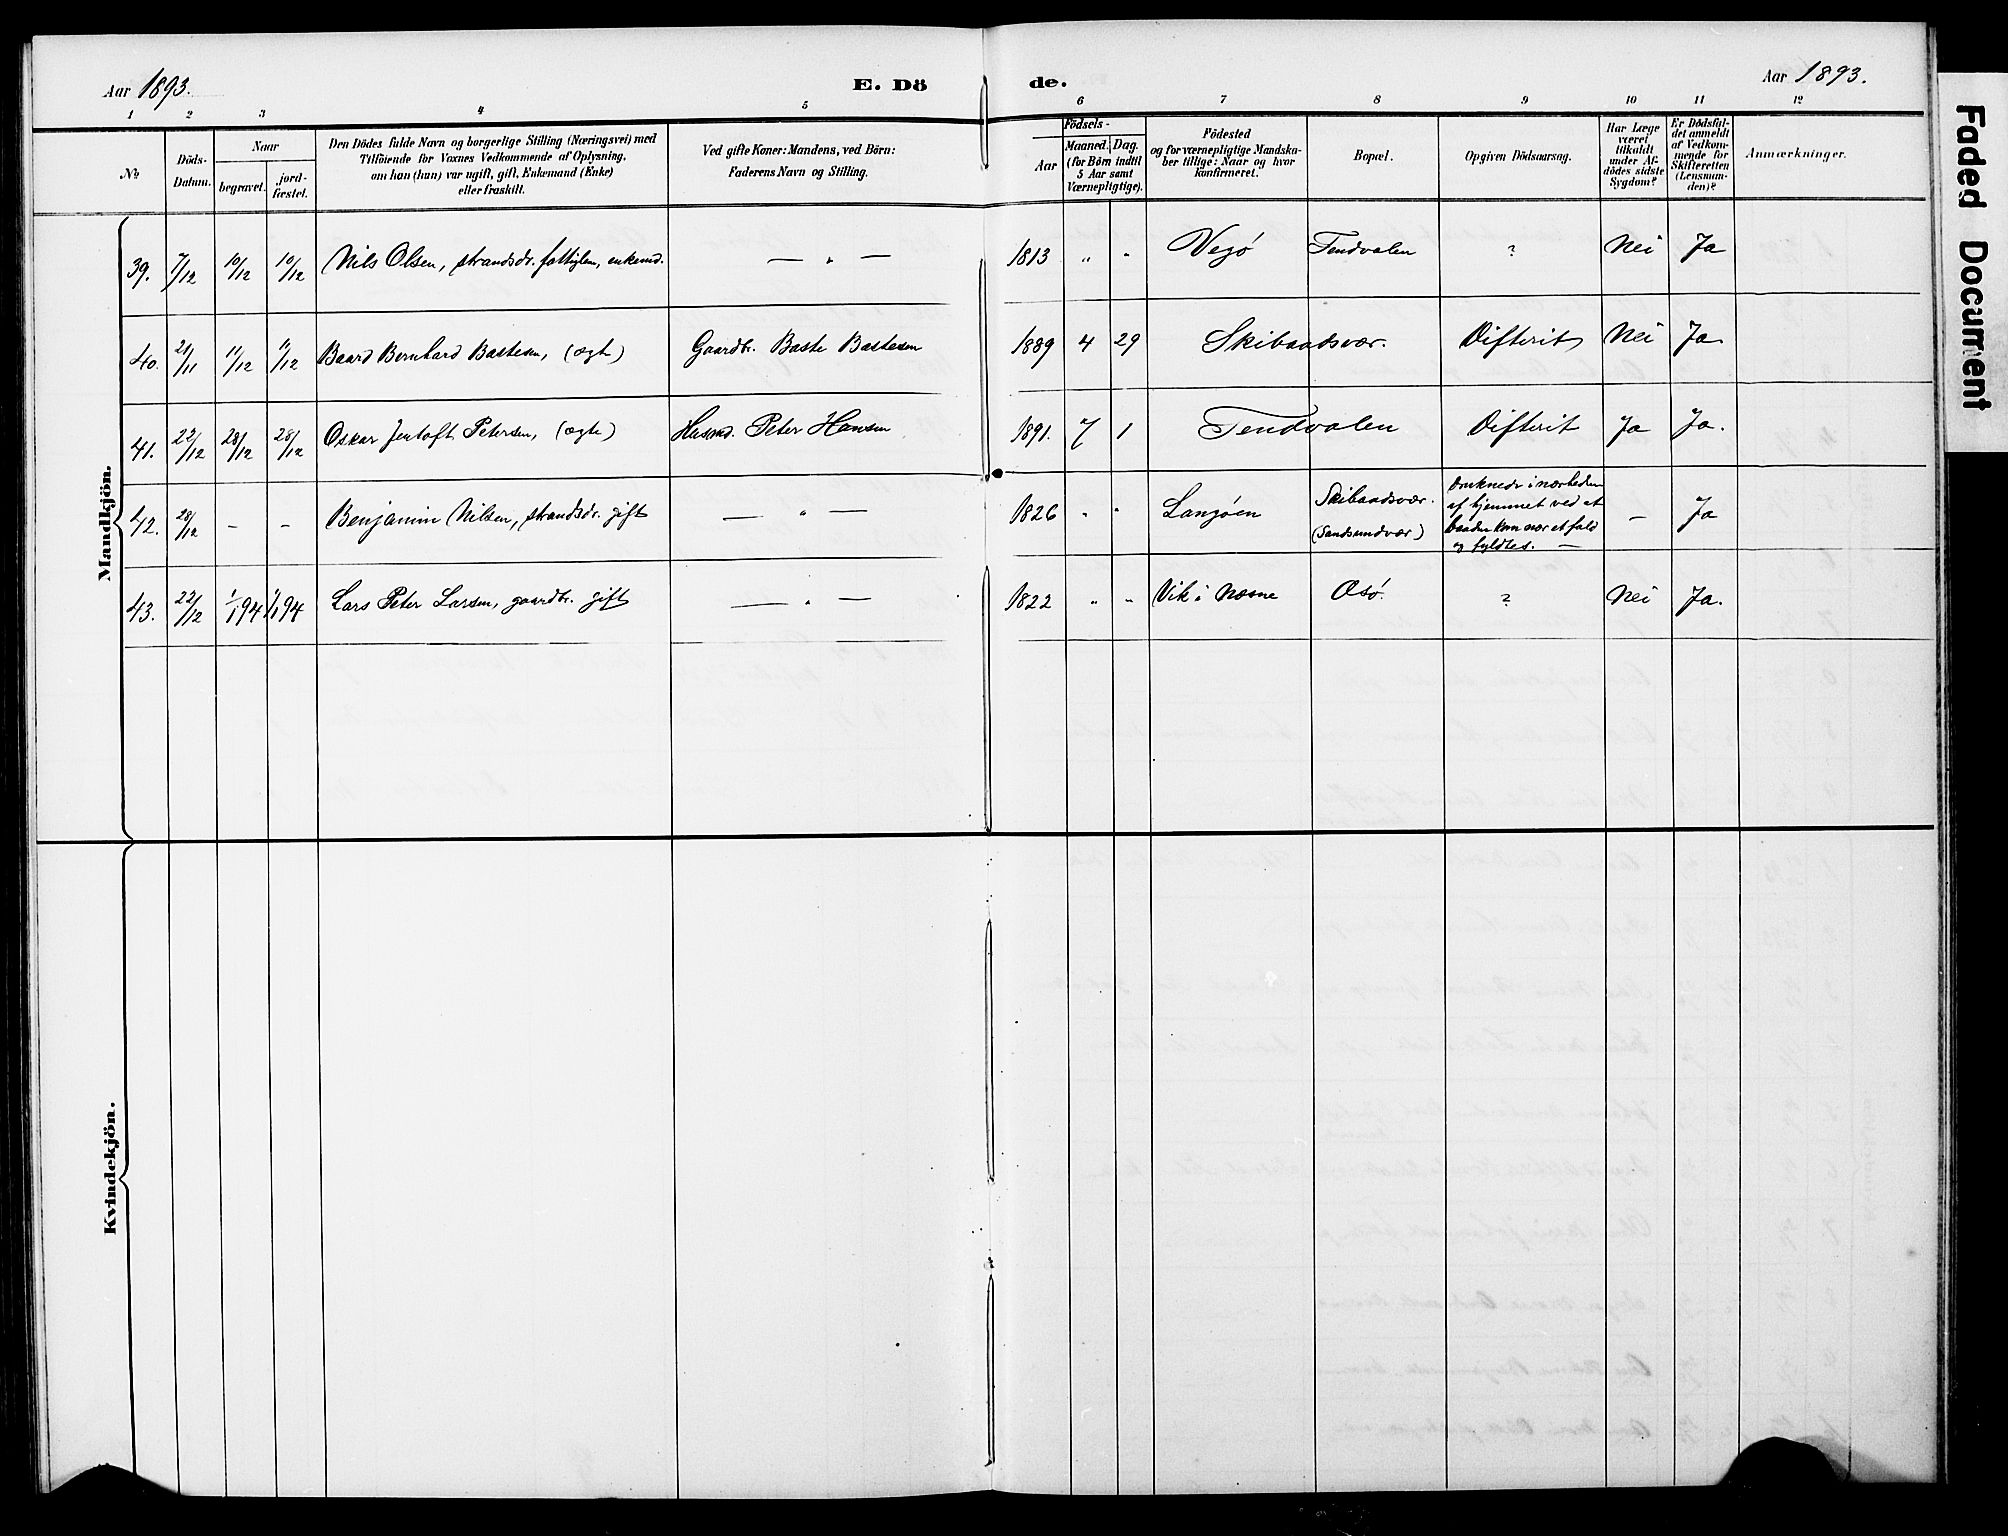 Aar 1893. E. Dö de. Aar 1893.
1 2 3 4 5 6 7 8 9 10 11 12
No
Döds-Datum.
Naar
begravet.
jordfæstet.
Den Dödes fulde Navn og borgerlige Stilling (Næringsvei) med
Tilföiende for Voxnes Vedkommende af Oplysning,
om han (hun) var ugift, gift, Enkemand (Enke)
eller fraskilt.
Ved gifte Koner: Mandens, ved Börn:
Faderens Navn og Stilling.
Födsels-
Aar
Maaned. Dag.
(for Börn indtil
5 Aar samt
Værnepligtige).
Födested
og for værnepligtige Mandska-
ber tillige: Naar og hvor
konfirmeret.
Bopæl.
Opgiven Dödsaarsag.
Har Læge
været
tilkaldt
under Af-
dödes sidste
Sygdom?
Er Dödsfal-
det anmeldt
af Vedkom-
mende for
Skifteretten
(Lensman-
den)?
Anmærkninger.
Mandkjön.
39. 7/12 10/12 10/12 Nils Olsen, strandsdr. fattiglem, enkemd. — „ — 1813 „ „ Vegö Tendvalen ? Nei Ja
40. 21/11 11/12 11/12 Baard Bernhard Bastesen, (ægte) Gaardbr. Baste Bastesen 1889 4 29 Skibaadsvær. Difterit Nei Ja
41. 22/12 28/12 28/12 Oskar Jentoft Petersen, (ægte) Husmd. Peter Hansen 1891. 7 1 Tendvalen Difterit Ja Ja.
42. 28/12 – – Benjamin Nilsen, strandsdr. gift — „ — 1826 „ „ Langöen Skibaadsvær. (Sandsundvær) Druknede i nærheden
af hjemmet ved at
baaden kom nær et fald
og fyldtes. — – Ja
43. 22/12 1/1 94 1/1 94 Lars Peter Larsen, gaardbr. gift — „ — 1822 „ „ Vik i Næsne Osö. ? Nei Ja.
Kvindekjön.
Faded Document